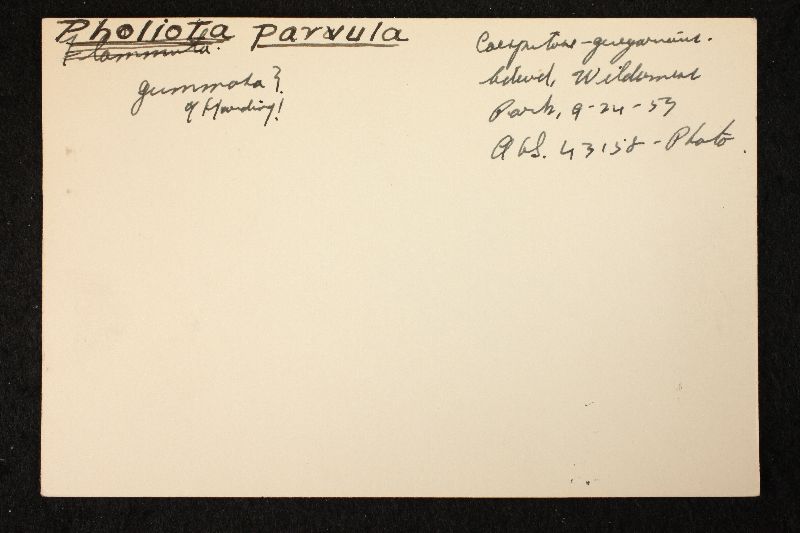 Pholiota parvula
Flammula.
gummosa?
of Harding!
Caespitose-gregarious.
Wilderness
Park, 9-24-53
AHS. 43158 - Photo.